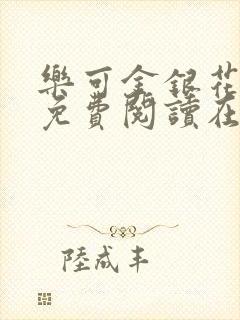 樂可金銀花
免費閱讀在
陸成丰